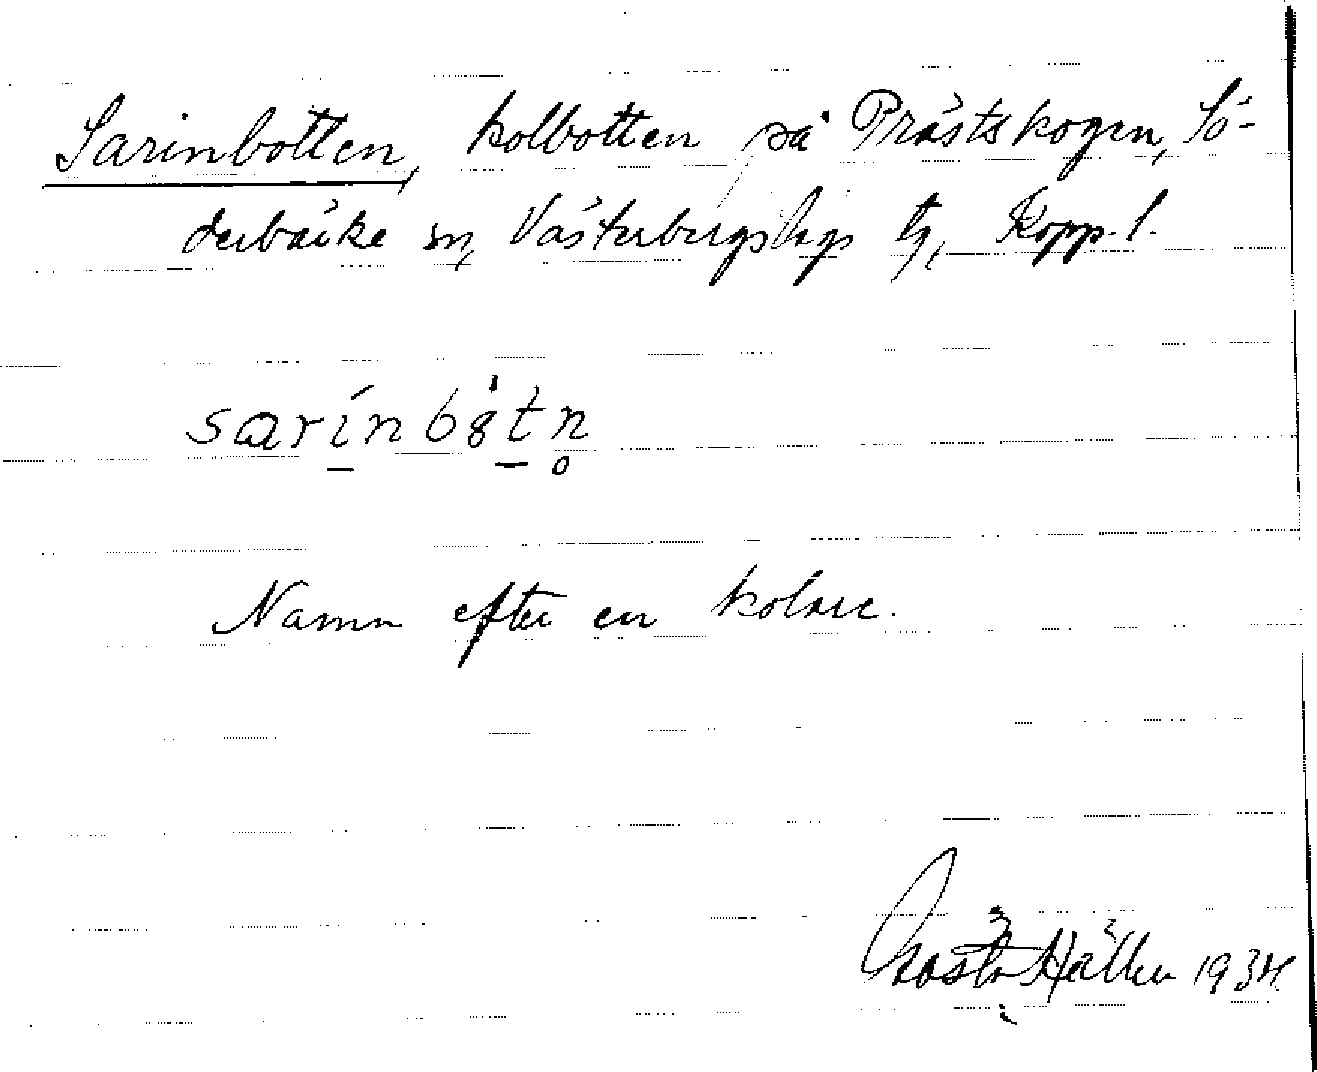 Sarinbotten, kolbotten på Prästskogen, Sö-
derbärke sn, Västerbergslags tg, Kopp. l.
sarinbȯtn̥
Namn efter en kolare.
1934.